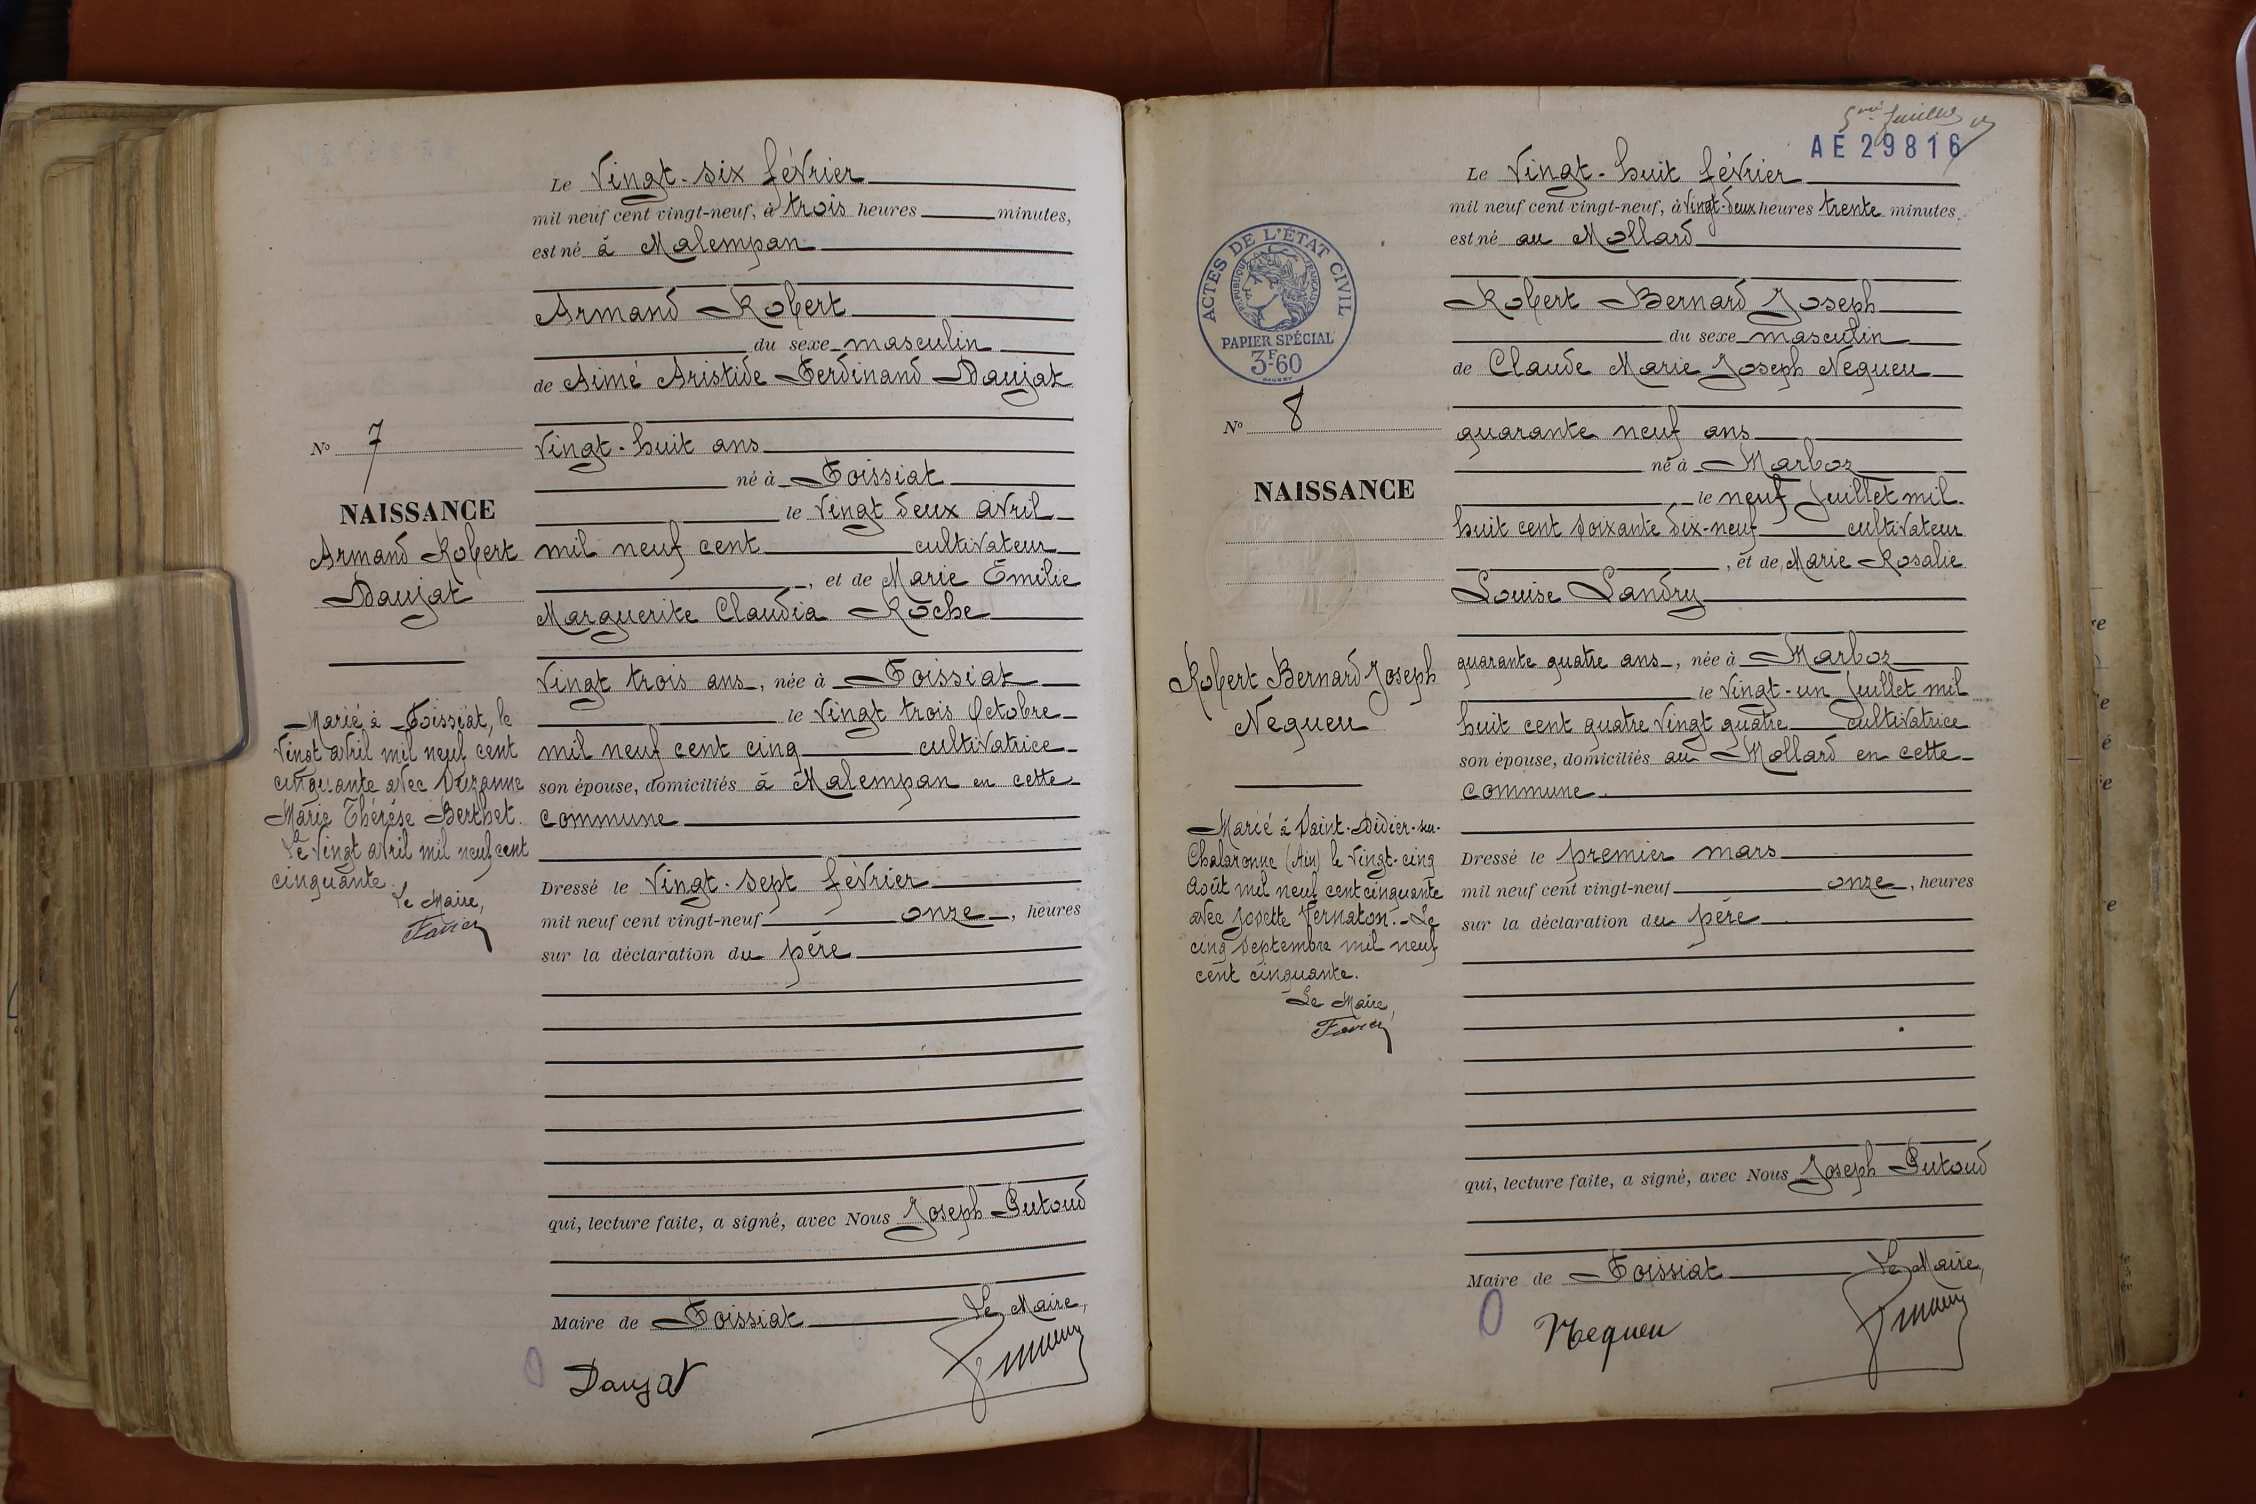 Le Vingt-six février
mil neuf cent vingt-neuf, à trois heures minutes,
est né à Malempan
Armand Robert
du sexe masculin
de Aimé Aristide Ferdinand Daujat
Vingt-huit ans
né à Foissiat
le Vingt deux avril
mil neuf cent cultivateur
, et de Marie Emilie
Marguerite Claudia Roche
Vingt trois ans, née à Foissiat
le Vingt trois Octobre
mil neuf cent cinq cultivatrice
son épouse, domiciliés à Malempan en cette
commune
Dressé le Vingt-sept février
mil neuf cent vingt-neuf onze, heures
sur la déclaration du père
qui, lecture faite, a signé, avec Nous Joseph Putoud
Maire de Foissiat Le Maire,
Daujat
No 7
NAISSANCE
Armand Robert
Daujat
Marié à Foissiat, le
vingt avril mil neuf cent
cinquante avec Suzanne
Marie Thérèse Berthet.
Le vingt avril mil neuf cent
cinquante.
Le Maire,
Favier
5me feuillet
AE 29816
Le Vingt-huit février
mil neuf cent vingt-neuf, à Vingt-deux heures trente minutes,
est né au Mollard
Robert Bernard Joseph
du sexe masculin
de Claude Marie Joseph Nequeu
quarante neuf ans
né à Marboz
le neuf Juillet mil
huit cent soixante dix-neuf cultivateur
, et de Marie Rosalie
Louise Landry
quarante quatre ans, née à Marboz
le Vingt-un Juillet mil
huit cent quatre vingt quatre cultivatrice
son épouse, domiciliés au Mollard en cette
commune.
Dressé le premier mars
mil neuf cent vingt-neuf onze, heures
sur la déclaration du père
qui, lecture faite, a signé, avec Nous Joseph Putoud
Maire de Foissiat Le Maire,
Nequeu
ACTES DE L'ÉTAT CIVIL
RÉPUBLIQUE FRANÇAISE
PAPIER SPÉCIAL
3F-60
No 8
NAISSANCE
Robert Bernard Joseph
Nequeu
Marié à Saint-Didier-sur-
Chalaronne (Ain) le vingt-cinq
août mil neuf cent cinquante
avec Josette Vernaton. - Le
cinq septembre mil neuf
cent cinquante.
Le Maire,
Favier